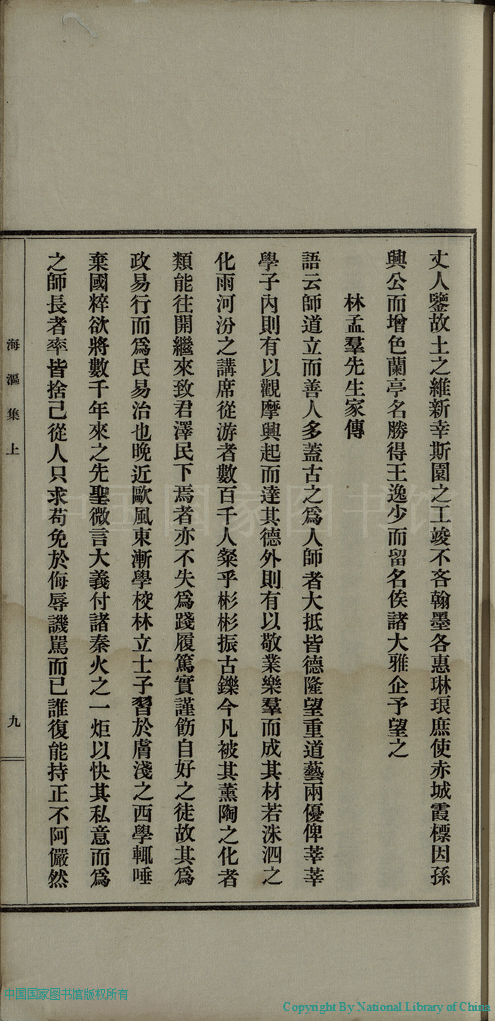 丈人鑒故土之維新幸斯園之工竣不吝翰墨各惠琳琅庶使赤城霞標因孫
興公而增色蘭亭名勝得王逸少而留名俟諸大雅企予望之
林孟羣先生家傳
語云師道立而善人多蓋古之爲人師者大抵皆德隆望重道藝兩優俾莘莘
學子內則有以觀摩興起而達其德外則有以敬業樂羣而成其材若洙泗之
化雨河汾之講席從游者數百千人粲乎彬彬振古鑠今凡被其薰陶之化者
類能往開繼來致君澤民下焉者亦不失爲踐履篤實謹飭自好之徒故其爲
政易行而爲民易治也晚近歐風東漸學校林立士子習於膚淺之西學輒唾
棄國粹欲將數千年來之先聖微言大義付諸秦火之一炬以快其私意而爲
之師長者率皆捨己從人只求苟免於侮辱譏罵而已誰復能持正不阿儼然
海漚集上
九
中国国家图书馆
中国国家图书馆版权所有
Copyright By National Library of China